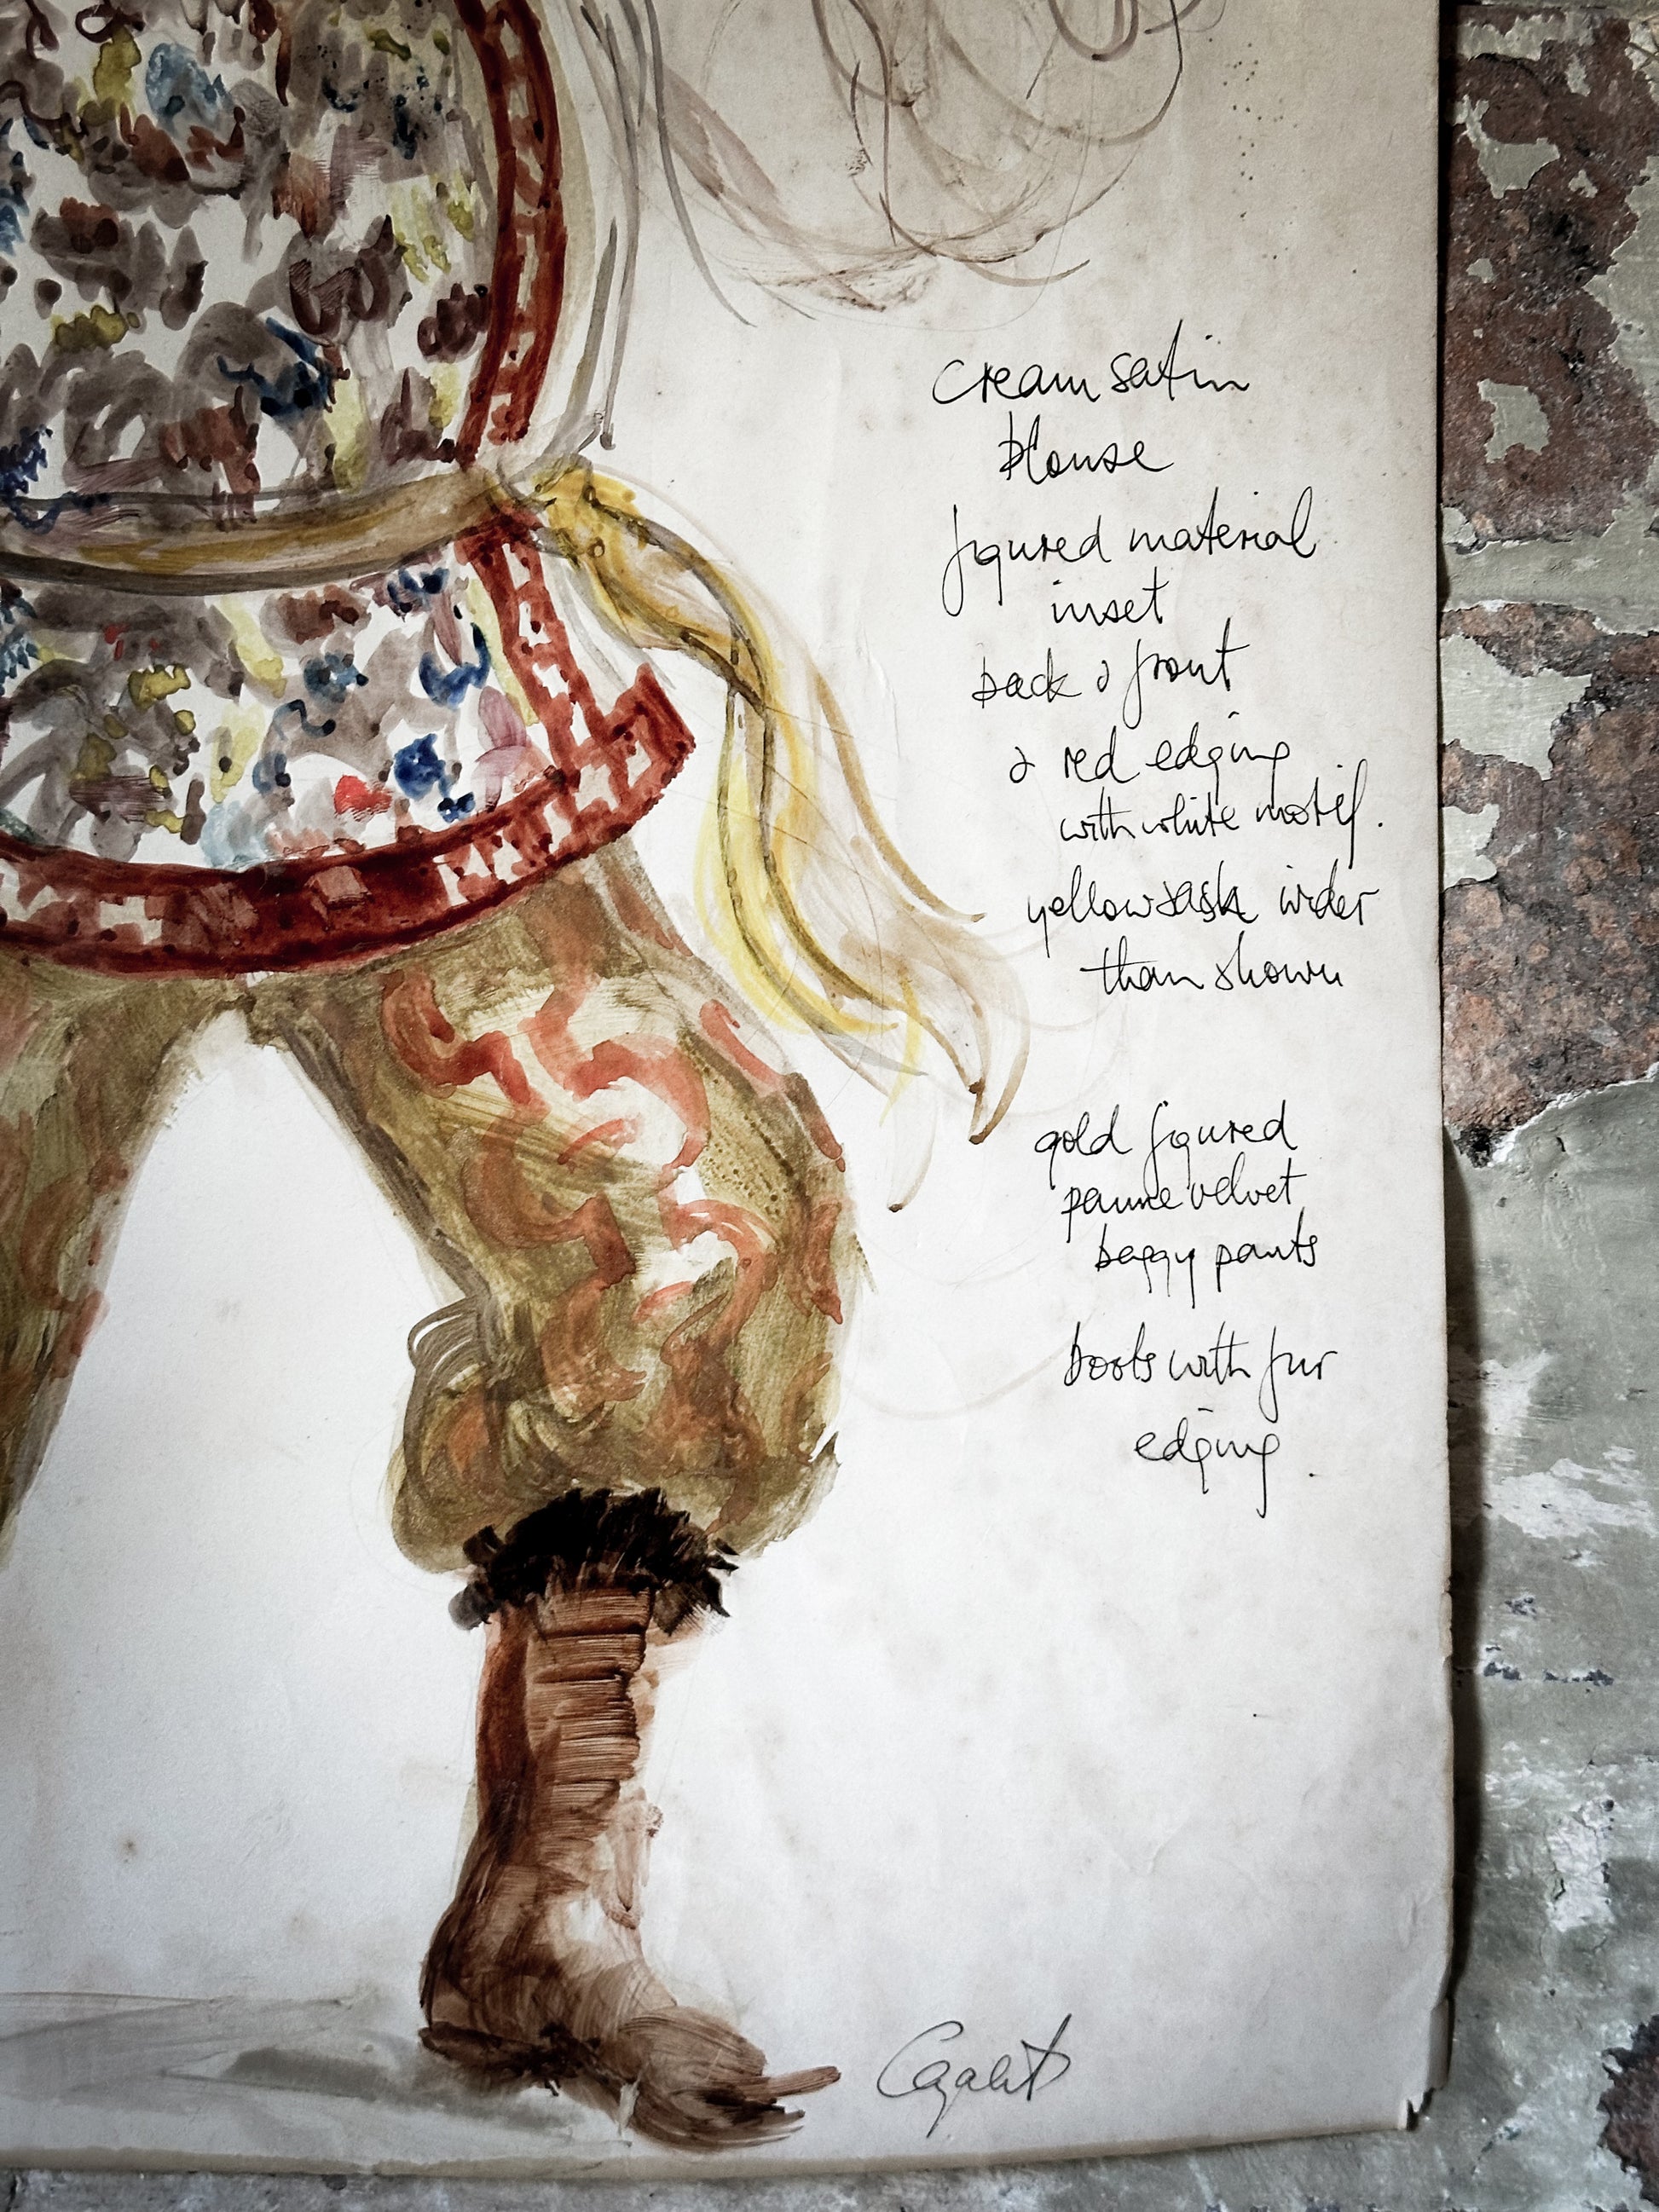 cream satin
blouse
figured material
inset
back & front
& red edging
with white motif.
yellow sash wider
than shown
gold figured
panne velvet
baggy pants
boots with fur
edging.